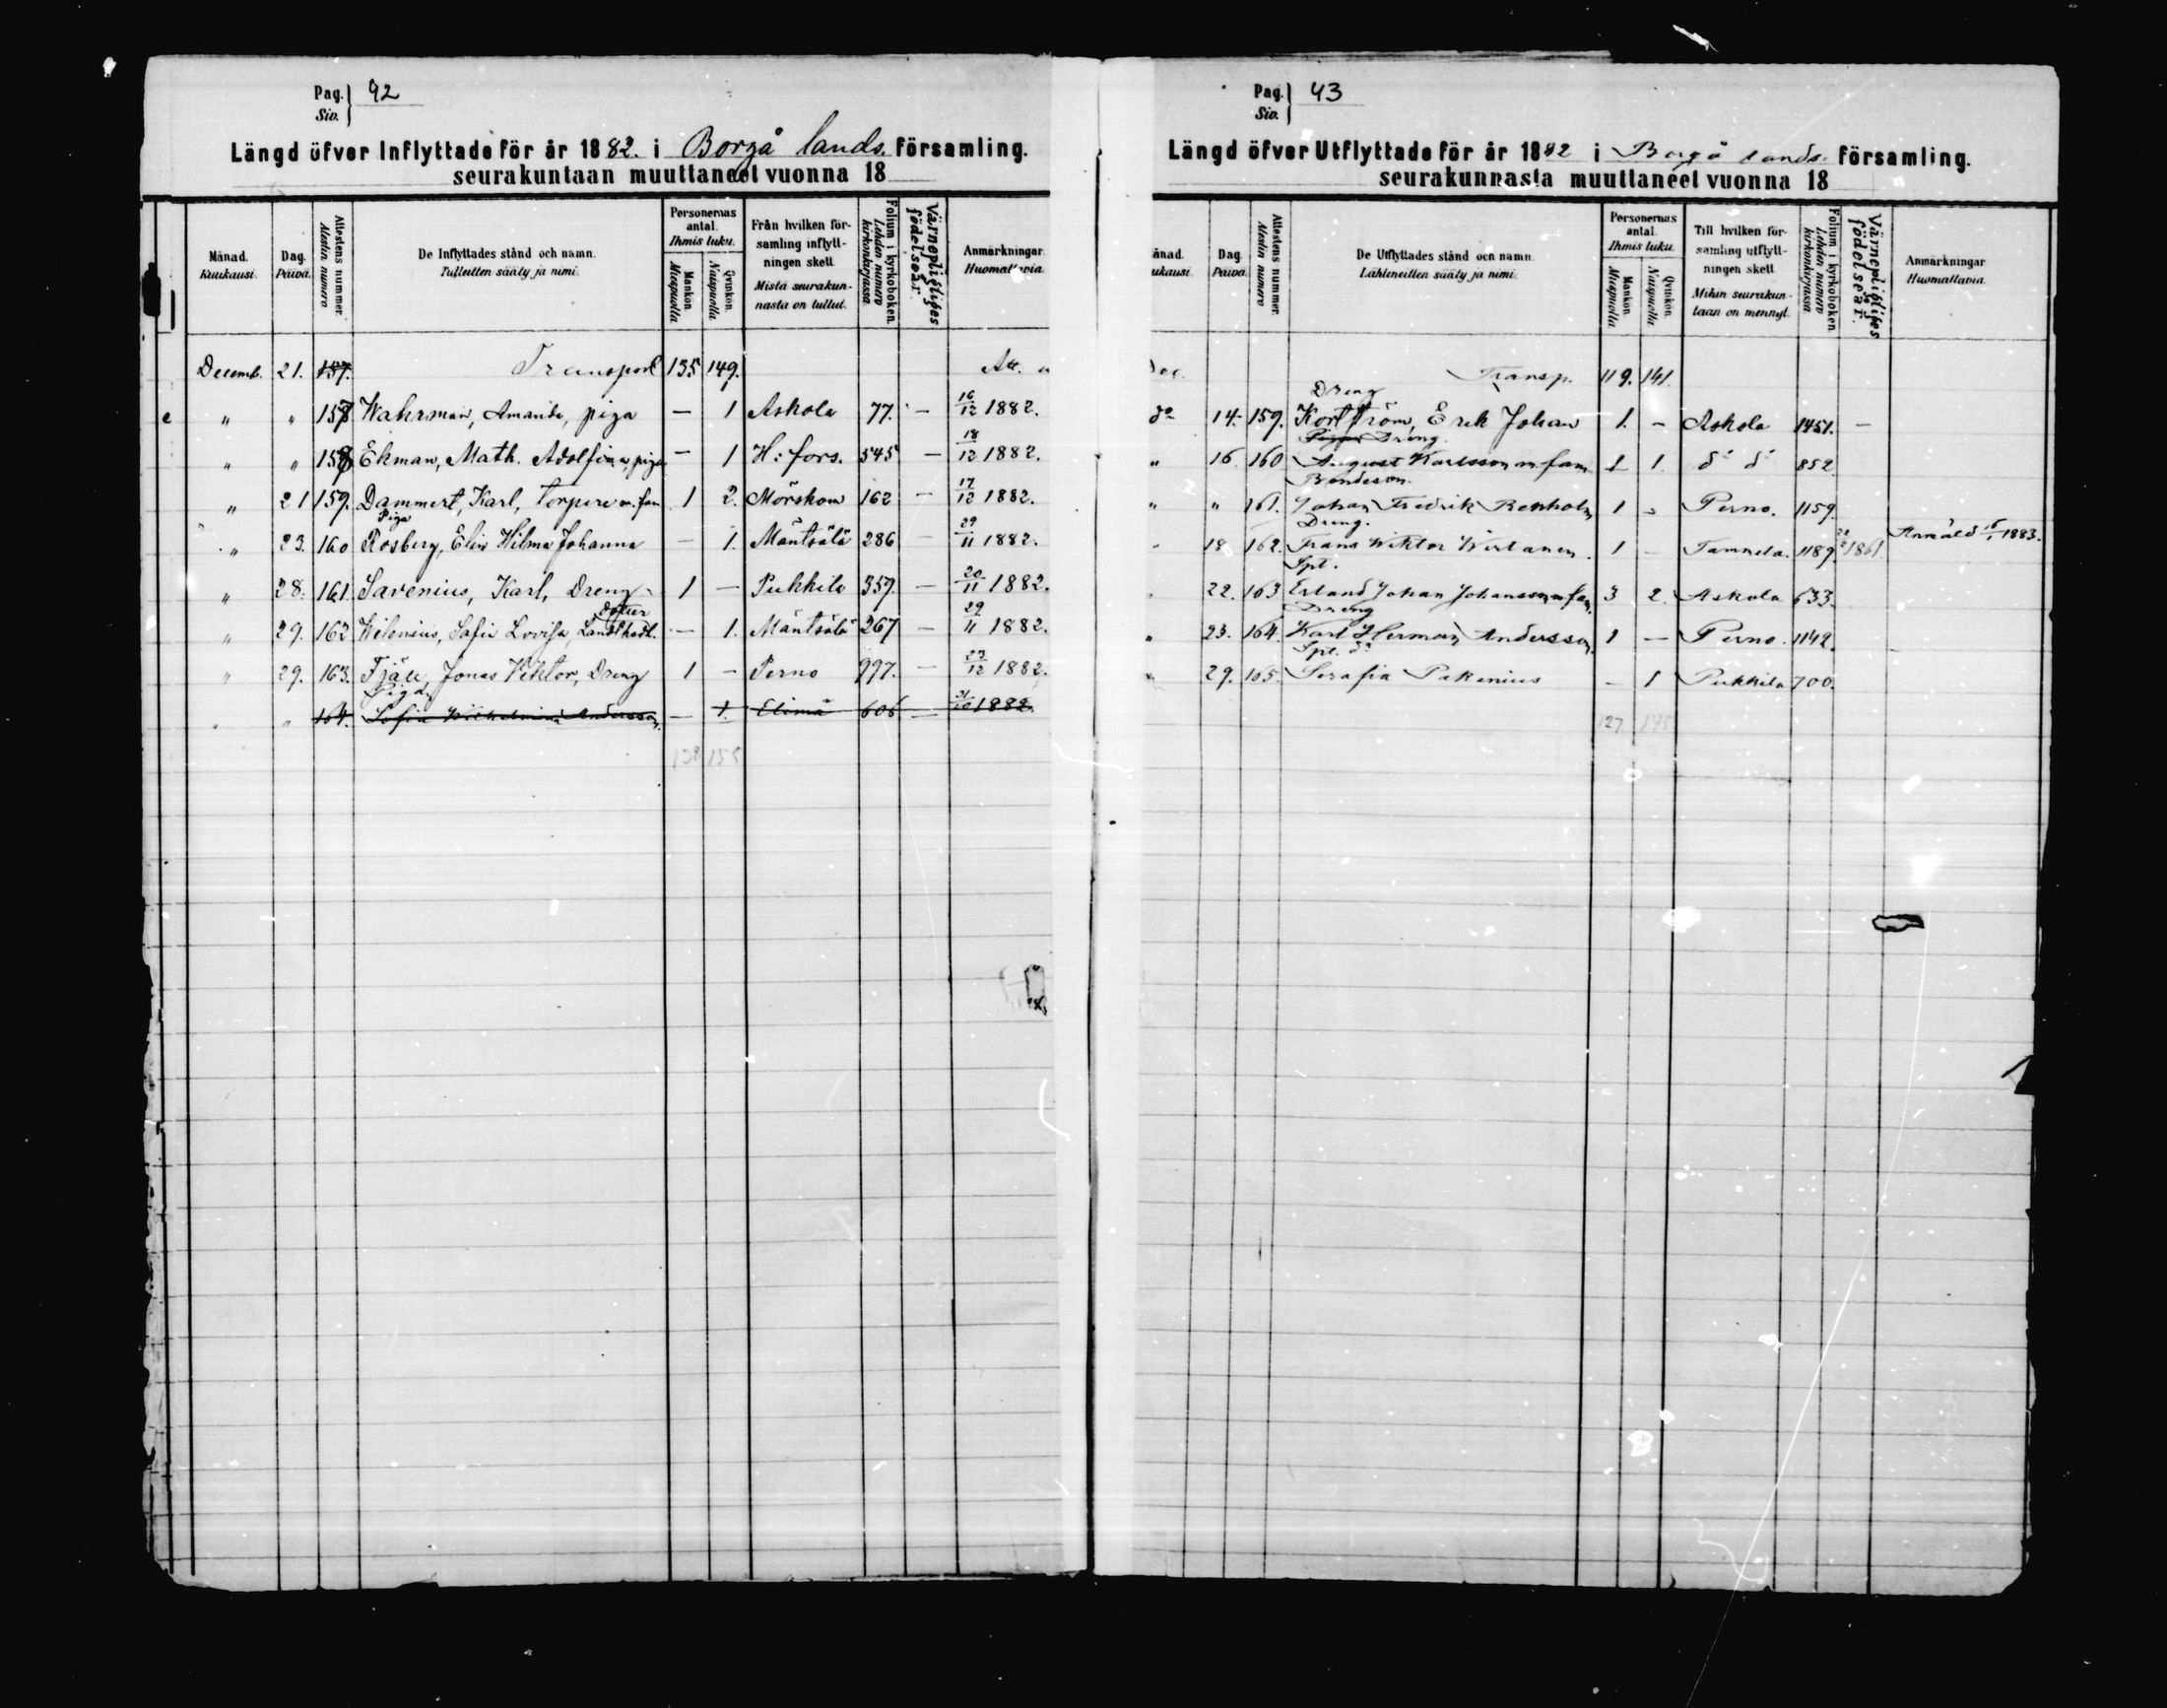 Pag. Siv. 42
Längd öfver Inflyttade för år 1882. i Borgå lands. församling.
seurakuntaan muuttaneet vuonna 18
Månad. Kuukausi. Dag. Päivä. Attestens nummer. Alestin numero De Inflyttades stånd och namn. Tulleitten sääty ja nimi. Personernas antal. Ihmis luku. Mankön. Miespuolia Qvinkön. Naispuolia Från hvilken församling inflyttningen skett. Mistä seurakunnasta on tullut. Folium i kyrkoboken. Lehden numero kirkonkirjassa Värnepligtiges födelseår. Anmärkningar Huomattavia
Decemb. 21. 157. Transport 135 149. Att.
" " 157 Wahrman, Amanda, piga — 1 Askola 77. — 16/12 1882.
" " 158 Ekman, Math. Adolfina, piga — 1 H:fors. 545 — 18/12 1882.
" 21 159. Dammert, Karl, Torpare m. fam 1 2. Mörskom 162 — 17/12 1882.
" 23. 160 Piga Rosberg, Elin Hilma Johanna — 1. Mäntsälä 286 — 29/11 1882.
" 28. 161. Savenius, Karl, Dreng 1 — Pukkila 357. — 20/11 1882.
" 29. 162 Wilenius, Sofia Lovisa, Landtbodotter — 1. Mäntsälä 267 — 29/11 1882.
" 29. 163. Tjäu, Jonas Viktor, Dreng 1 — Perno 997. — 23/12 1882.
" " 164. Piga Sofia Wilhelmina Andersson, — 1. Elimä 606 — 31/10 1882.
138 155
Pag. Siv. 43
Längd öfver Utflyttade för år 1882 i Borgå lands. församling.
seurakunnasta muuttaneet vuonna 18
ånad. ukausi. Dag. Päivä. Attestens nummer. Alestin numero De Utflyttades stånd och namn. Lähteneitten sääty ja nimi. Personernas antal. Ihmis luku. Mankön. Miespuolia Qvinkön. Naispuolia Till hvilken församling utflyttningen skett. Mihin seurakuntaan on mennyt. Folium i kyrkoboken. Lehden numero kirkonkirjassa Värnepligtiges födelseår. Anmärkningar Huomattavia.
Dec. Transp. 119. 141.
do 14. 159. Dreng Kortström, Erik Johan 1. — Askola 1451. —
" 16 160 Dreng. August Karlsson m. fam 1 1. do do 852
" " 161. Bondeson. Johan Fredrik Renholm 1 - Perno. 1159.
" 18 162. Dreng. Frans Wiktor Wirtanen 1 — Tammela. 1189. 1861. Anmäld 1883.
" 22. 163 Spt. Erland Johan Johansson m. fam. 3 2. Askola 633.
" 23. 164. Dreng Karl Herman Andersson, 1 — Perno. 1142.
" 29. 165. Spt. Serafia Pakenius — 1 Pukkila 700.
127 145